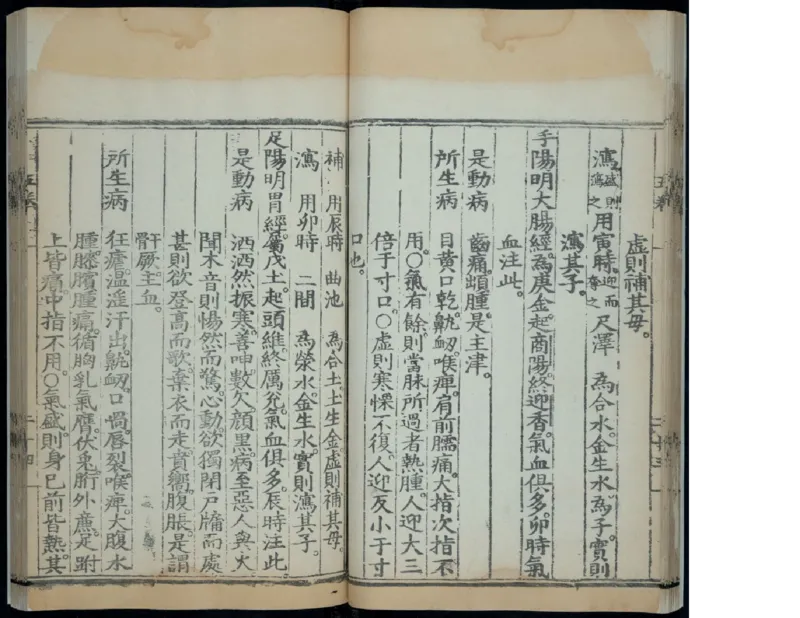 虛則補其母。
瀉盛則瀉之用寅時。迎而奪之尺澤 為合水。金生水。為子。實則
瀉其子。
手陽明大腸經。為庚金。起商陽。終迎香。氣血俱多。卯時氣
血注此。
是動病 齒痛。䪼腫。是主津。
所生病 目黃。口乾。鼽衂。喉痺。肩前臑痛。大指次指不
用。○氣有餘。則當脉所過者熱腫。人迎大三
倍于寸口。○虛則寒慄不復。人迎反小于寸
口也。
補 用辰時 曲池 為合土。土生金。虛則補其母。
瀉 用卯時 二間 為滎水。金生水。實則瀉其子。
足陽明胃經。屬戊土。起頭維。終厲兌。氣血俱多。辰時注此
是動病 洒洒然振寒。善呻數欠。顏黑。病至惡人與火
聞木音則惕然而驚。心動。欲獨閉戶牖而處
甚則欲登高而歌。棄衣而走。賁嚮腹脹。是謂
骭厥。主血。
所生病 狂瘧。溫滛汗出。鼽衂。口喎。唇裂。喉痺。大腹水
腫。膝臏腫痛。循胸乳氣膺伏兎䯒外廉。足跗
上皆痛。中指不用。○氣盛則身已前皆熱。其